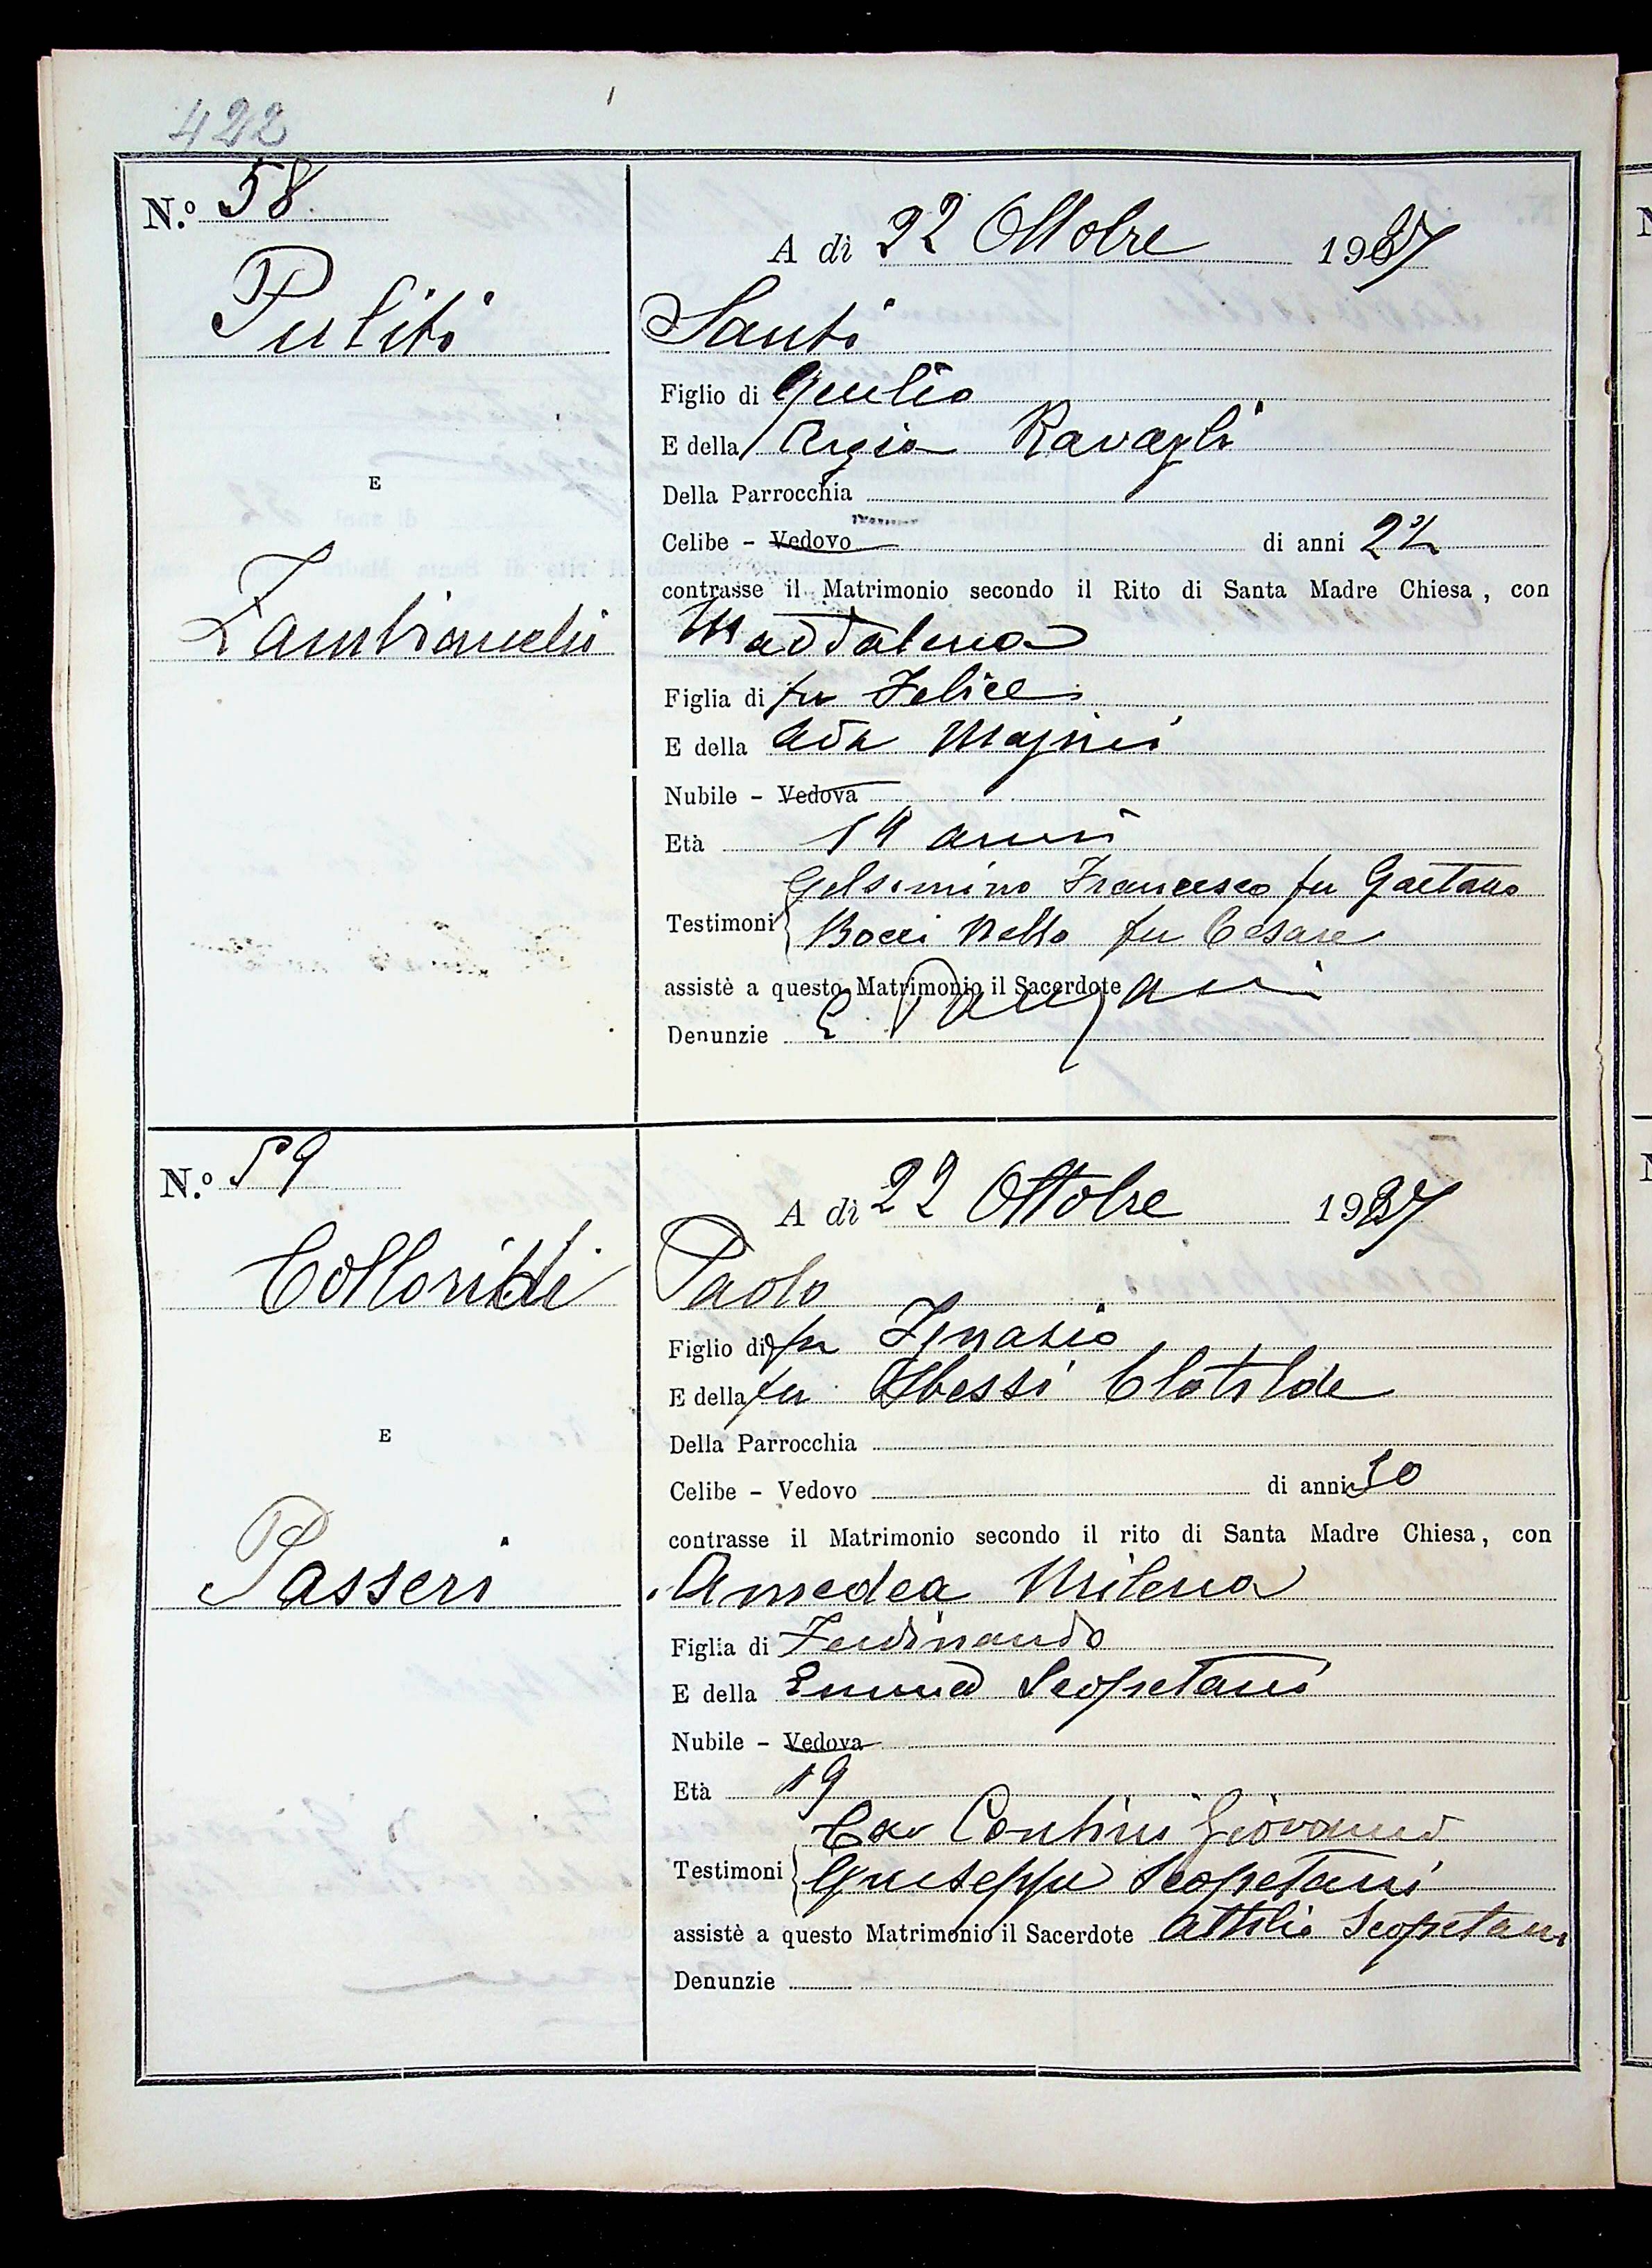 422
N.º 58
A dì 22 Ottobre 1927
Puliti
Santi
Figlio di Giulio
E della Argia Ravagli
Della Parrocchia
E
Celibe - Vedovo di anni 22
contrasse il Matrimonio secondo il Rito di Santa Madre Chiesa, con
Zambianchi
Maddalena
Figlia di fu Felice
E della Ada Magnei
Nubile - Vedova
Età 19 anni
Gelsomino Francesco fu Gaetano
Testimoni
Bocci Nello fu Cesare
assistè a questo Matrimonio il Sacerdote
Denunzie E
N.º 59
A dì 22 Ottobre 1927
Colloridi
Paolo
Figlio di fu Ignazio
E della fu Clotilde
Della Parrocchia
E
Celibe - Vedovo di anni 50
contrasse il Matrimonio secondo il rito di Santa Madre Chiesa, con
Passeri
Amedea Milena
Figlia di Ferdinando
E della Emma Scopetani
Nubile - Vedova
Età 19
Cav Contini Giovanni
Testimoni
Giuseppe Scopetani
assistè a questo Matrimonio il Sacerdote Attilio Scopetani
Denunzie